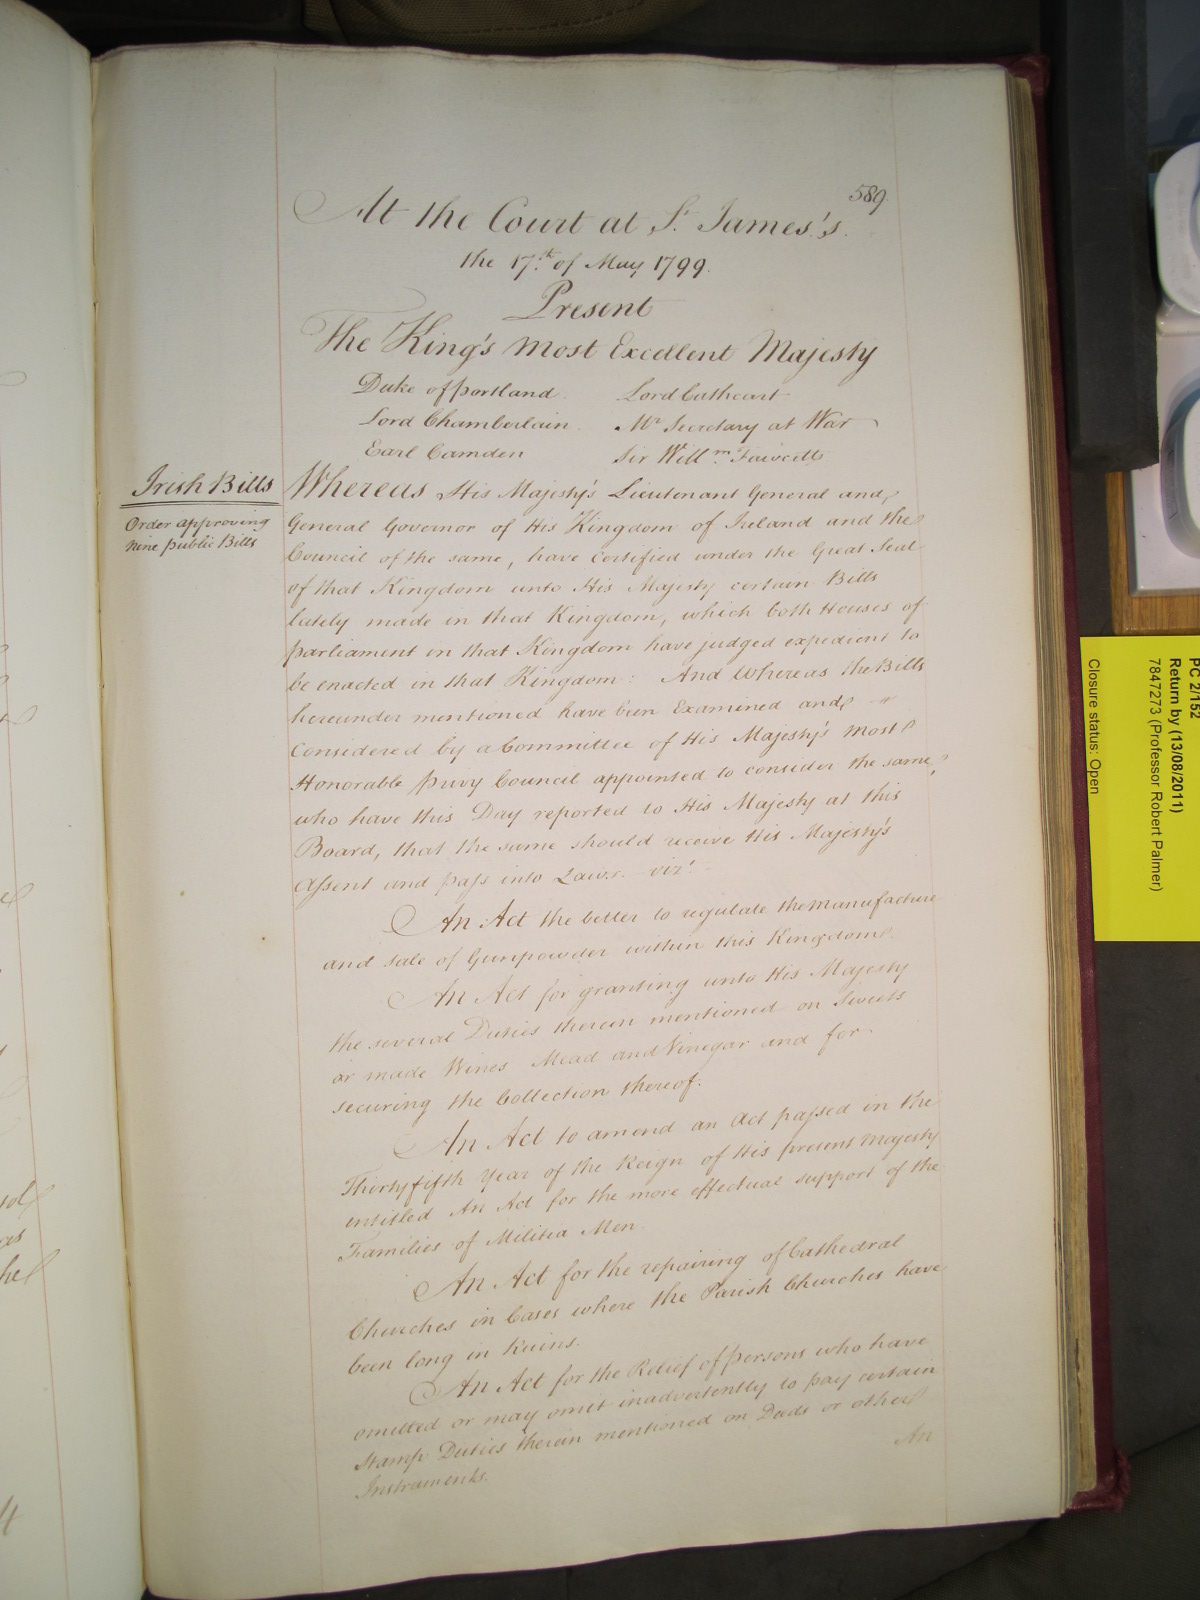 589.
At the Court at St. James's.
the 17th. of May 1799.
Present
The King's most Excellent Majesty
Duke of portland. Lord Cathcart
Lord Chamberlain. Mr. Secretary at War
Earl Camden Sir Willm. Fawcett
Irish Bills
Order approving
nine public Bills
Whereas His Majesty's Lieutenant General and
General Governor of His Kingdom of Ireland and the
Council of the same, have certified under the Great Seal
of that Kingdom unto His Majesty certain Bills
lately made in that Kingdom, which both Houses of
parliament in that Kingdom have judged expedient to
be enacted in that Kingdom: And Whereas the Bills
hereunder mentioned have been Examined and
Considered by a Committee of His Majesty's most
Honorable privy Council appointed to consider the same,
who have this Day reported to His Majesty at this
Board, that the same should receive His Majesty's
Assent and pass into Laws. vizt.
An Act the better to regulate the Manufacture
and sale of Gunpowder within this Kingdom.
An Act for granting unto His Majesty
the several Duties therein mentioned on Sweets
or made Wines Mead and Vinegar and for
securing the Collection thereof.
An Act to amend an Act passed in the
Thirtyfifth Year of the Reign of His present Majesty
entitled An Act for the more effectual support of the
Families of Militia Men.
An Act for the repairing of Cathedral
Churches in Cases where the Parish Churches have
been long in Ruins.
An Act for the Relief of persons who have
omitted or may omit inadvertently to pay certain
Stamp Duties therein mentioned on Deeds or other
Instruments.
An
PC 2/152
Return by (13/08/2011)
7847273 (Professor Robert Palmer)
Closure status: Open